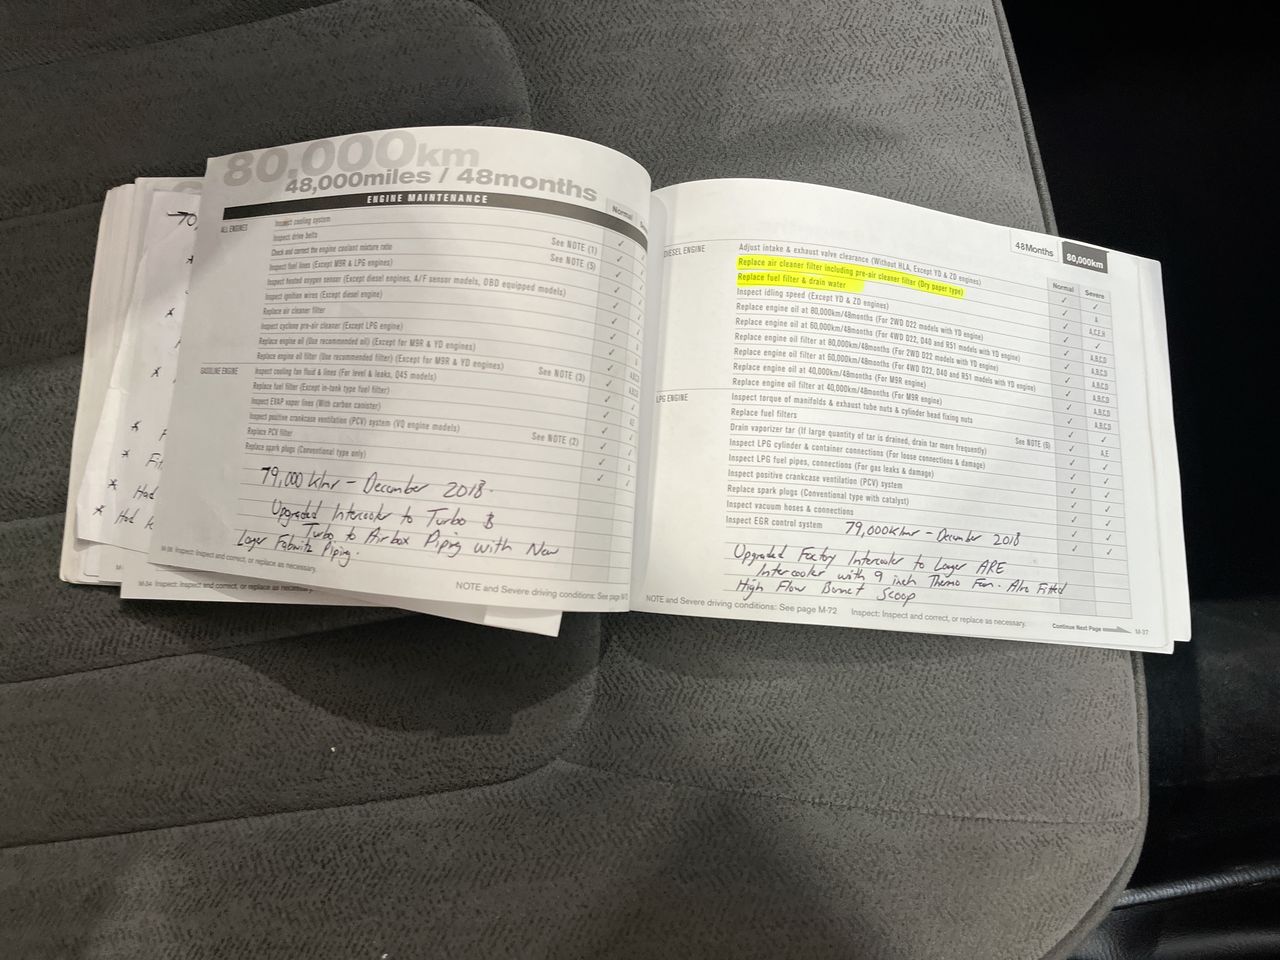 80,000km
48,000miles / 48months
ENGINE MAINTENANCE
Normal
ALL ENGINES
Inspect cooling system
Inspect drive belts See NOTE (1)
Check and correct the engine coolant mixture ratio See NOTE (5)
Inspect fuel lines (Except M9R & LPG engines)
Inspect heated oxygen sensor (Except diesel engines, A/F sensor models, OBD equipped models)
Inspect ignition wires (Except diesel engine)
Replace air cleaner filter
Inspect cyclone pre-air cleaner (Except LPG engine)
Replace engine oil (Use recommended oil) (Except for M9R & YD engines)
Replace engine oil filter (Use recommended filter) (Except for M9R & YD engines)
GASOLINE ENGINE
Inspect cooling fan fluid & lines (For level & leaks, Q45 models) See NOTE (3)
Replace fuel filter (Except in-tank type fuel filter)
Inspect EVAP vapor lines (With carbon canister)
Inspect positive crankcase ventilation (PCV) system (VQ engine models)
Replace PCV filter See NOTE (2)
Replace spark plugs (Conventional type only)
79,000 Klmr - December 2018.
Upgraded Intercooler to Turbo &
Turbo to Airbox Piping with New
Larger Fabwitz Piping.
M-36 Inspect: Inspect and correct, or replace as necessary.
NOTE and Severe driving conditions: See page M-7
M-34 Inspect: Inspect and correct, or replace as necessary
70,
F
Fit
Had
Had
48Months 80,000km
Normal Severe
DIESEL ENGINE
Adjust intake & exhaust valve clearance (Without HLA, Except YD & ZD engines)
Replace air cleaner filter including pre-air cleaner filter (Dry paper type) A
Replace fuel filter & drain water A,C,E,H
Inspect idling speed (Except YD & ZD engines)
Replace engine oil at 80,000km/48months (For 2WD D22 models with YD engine) A,B,C,D
Replace engine oil at 60,000km/48months (For 4WD D22, D40 and R51 models with YD engine) A,B,C,D
Replace engine oil filter at 80,000km/48months (For 2WD D22 models with YD engine) A,B,C,D
Replace engine oil filter at 60,000km/48months (For 4WD D22, D40 and R51 models with YD engine) A,B,C,D
Replace engine oil at 40,000km/48months (For M9R engine) A,B,C,D
Replace engine oil filter at 40,000km/48months (For M9R engine)
LPG ENGINE
Inspect torque of manifolds & exhaust tube nuts & cylinder head fixing nuts
Replace fuel filters See NOTE (6) A,E
Drain vaporizer tar (If large quantity of tar is drained, drain tar more frequently)
Inspect LPG cylinder & container connections (For loose connections & damage)
Inspect LPG fuel pipes, connections (For gas leaks & damage)
Inspect positive crankcase ventilation (PCV) system
Replace spark plugs (Conventional type with catalyst)
Inspect vacuum hoses & connections
Inspect EGR control system
79,000Klmr - December 2018
Upgraded Factory Intercooler to Larger ARE
Intercooler with 9 inch Thermo Fan. Also Fitted
High Flow Bonnet Scoop
NOTE and Severe driving conditions: See page M-72 Inspect: Inspect and correct, or replace as necessary.
Continue Next Page M-37